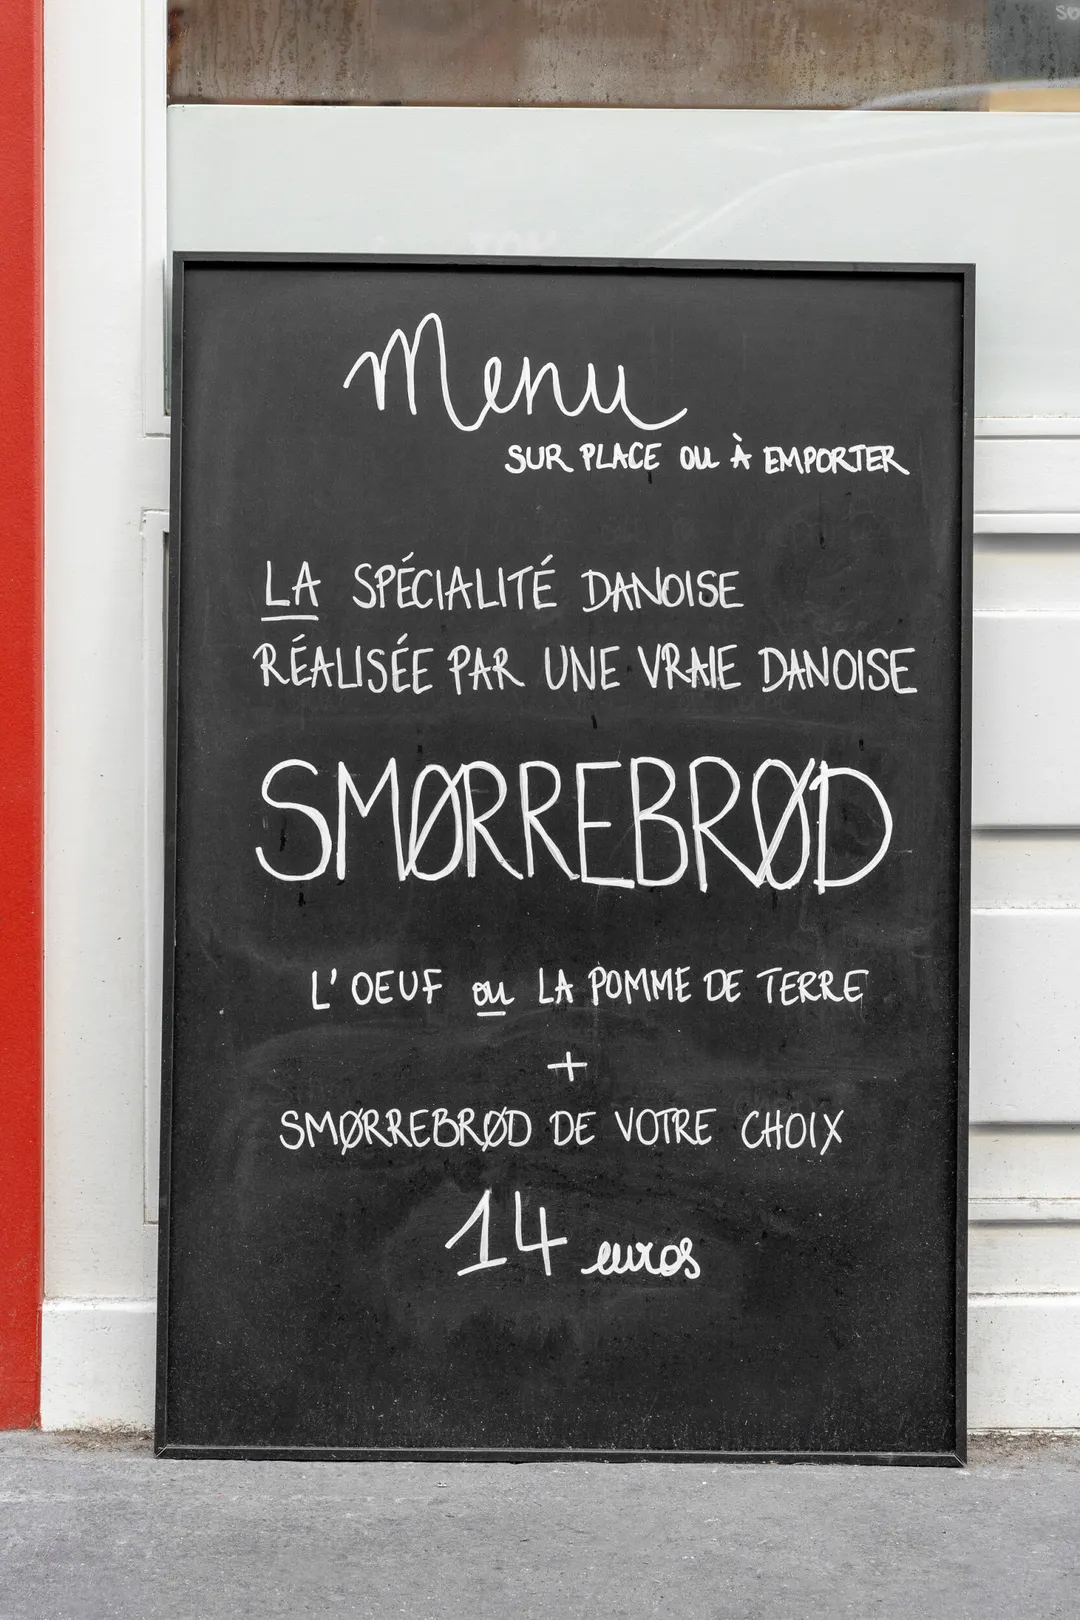 Menu
SUR PLACE OU À EMPORTER
LA SPÉCIALITÉ DANOISE
RÉALISÉE PAR UNE VRAIE DANOISE
SMØRREBRØD
L'OEUF ou LA POMME DE TERRE
+
SMØRREBRØD DE VOTRE CHOIX
14 euros